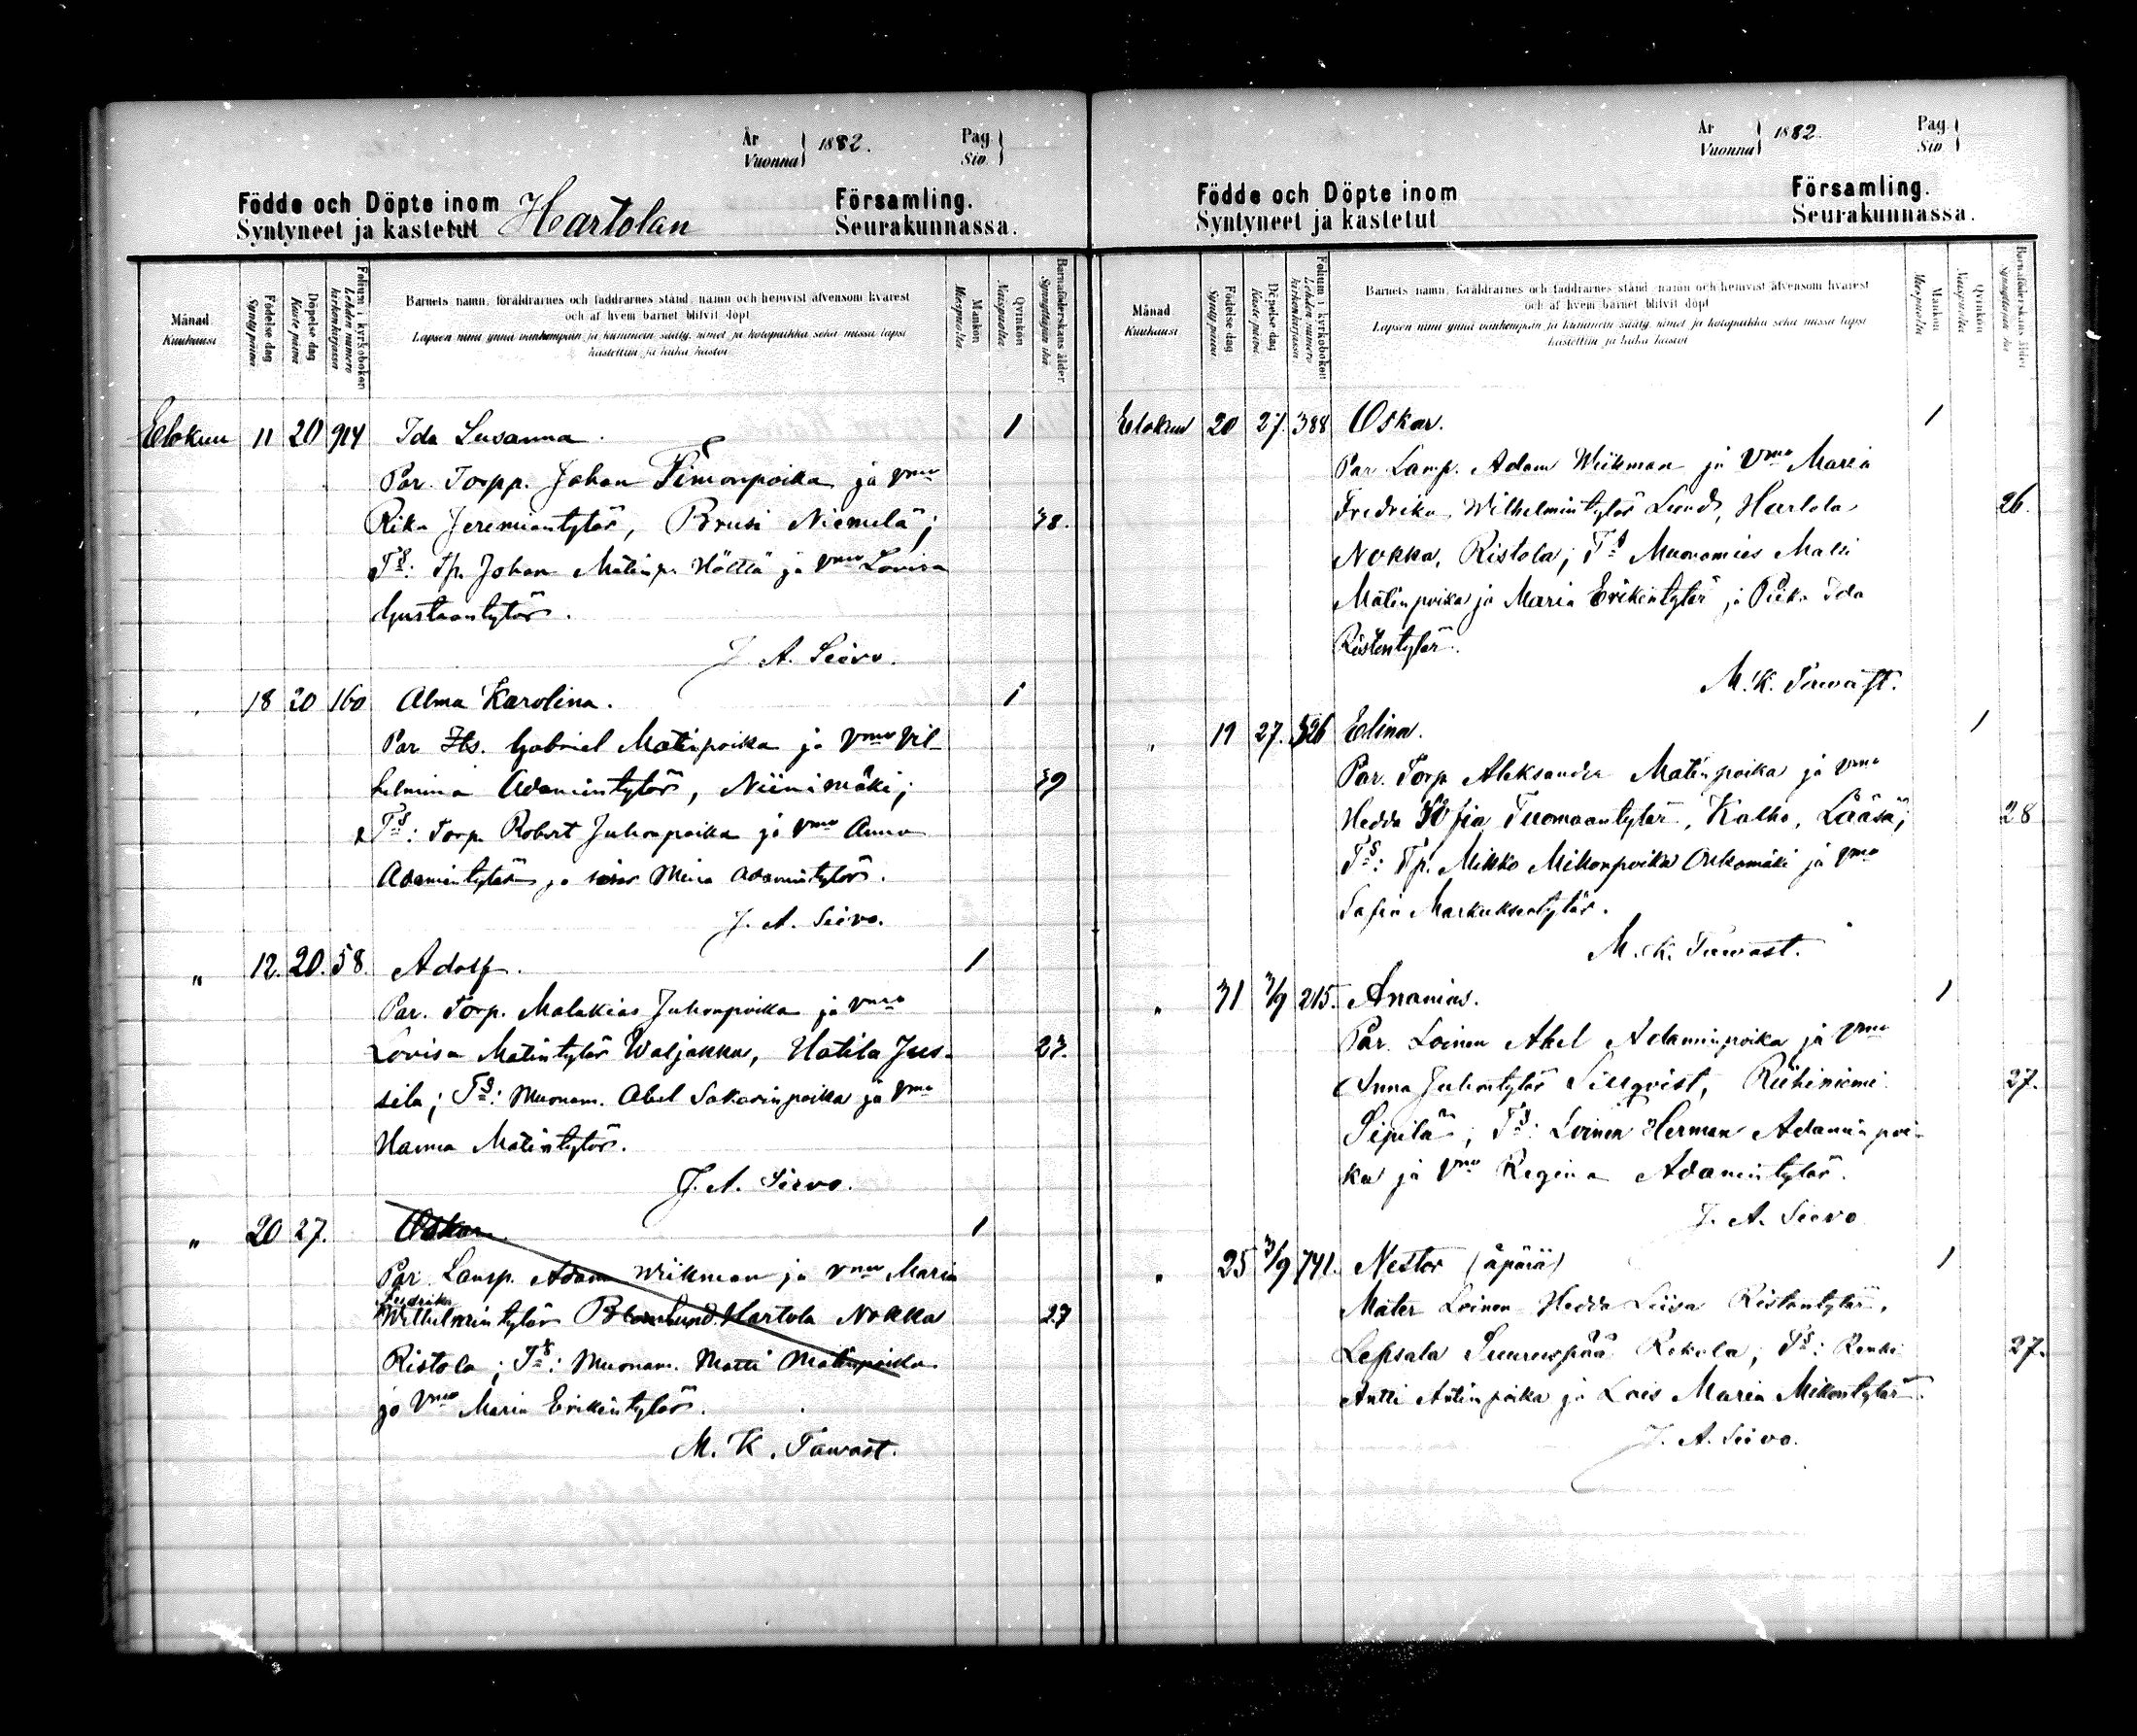 År
Vuonna } 1882.
Pag.
Siv. }
Födde och Döpte inom
Syntyneet ja kastetut Hartolan
Församling.
Seurakunnassa.
Månad
Kuukausi
Födelse dag
Synty päivä
Döpelse dag
Kaste päivä
Folium i kyrkoboken
Lehden numero
kirkonkirjassa
Barnets namn, föräldrarnes och faddrarnes stånd, namn och hemvist äfvensom hvarest
och af hvem barnet blifvit döpt
Lapsen nimi ynnä vanhempain ja kummein sääty, nimet ja kotopaikka sekä missä lapsi
kastettiin ja kuka kastoi
Mankön
Miespuolta
Qvinkön
Naispuolta
Barnaföderskans ålder
Synnyttäjän ikä
Elokuu 11 20 914 Ida Susanna. 1
Par. Torpp. Johan Simonpoika ja vmo
Rika Jeremiantytär, Brusi Niemelä; 38.
Ts: Tp. Johan Matinp. Höltta ja vmo Lovisa
Gustaantytär.
J. A. Seivo.
" 18 20 160 Alma Karolina. 1
Par Its. Gabriel Matinpoika ja vmo Vil
helmina Adamintytär, Niinimäki; 39
Ts: Torp. Robert Juhonpoika ja vmo Anna
Adamintytär ja Mina Adamintytär.
J. A. Seivo.
" 12. 20. 58. Adolf. 1
Par. Torp. Malakias Juhonpoika ja vmo
Lovisa Matintytär Waljakka, Hatila Jus-
sila; Ts: Muonam. Abel Sakarinpoika ja vmo
Hanna Matintytär.
J. A. Seivo.
" 20 27. Oskar. 1
Par. Lamp. Adam Wiikman ja vmo Maria
Fredrika
Wilhelmintytär Lund. Hartola Nokka 27
Ristola; Ts: Muonam. Matti Matinpoika
ja vmo Maria Erikintytär.
M. K. Tawast.
År
Vuonna } 1882.
Pag.
Siv. }
Födde och Döpte inom
Syntyneet ja kastetut
Församling.
Seurakunnassa.
Månad
Kuukausi
Födelse dag
Synty päivä
Döpelse dag
Kaste päivä
Folium i kyrkoboken
Lehden numero
kirkonkirjassa
Barnets namn, föräldrarnes och faddrarnes stånd, namn och hemvist äfvensom hvarest
och af hvem barnet blifvit döpt
Lapsen nimi ynnä vanhempain ja kummein sääty, nimet ja kotopaikka sekä missä lapsi
kastettiin ja kuka kastoi
Mankön
Miespuolta
Qvinkön
Naispuolta
Barnaföderskans ålder
Synnyttäjän ikä
Elokuu 20 27. 388 Oskar. 1
Par Lamp. Adam Wiikman ja Vmo Maria
Fredrika Wilhelmintytär Lund, Hartola 26.
Nokka, Ristola; Ts Muonamies Matti
Matinpoika ja Maria Erikintytär ja Piika Ida
Ristontytär.
M. K. Tawast.
" 19 27. 526 Elina. 1
Par. Torp. Aleksander Matinpoika ja vmo
Hedda Sofia Tuomaantytär, Kalho, Lääsä; 28
Ts: Tp. Mikko Mikonpoika Aukomäki ja vmo
Safia Markuksentytär.
M. K. Tawast.
" 31 3/9 215. Ananias. 1
Par. Loinen Abel Adaminpoika ja vmo
Anna Juhontytär Siuqvist, Riihiniemi 27.
Sipilä; Ts: Loinen Herman Adamin poi-
ka ja vmo Regina Adamintytär.
J. A. Seivo
" 25 3/9 741. Nestor (äpärä) 1
Mater Loinen Hedda Liisa Ristontytär,
Lepsala Suuruspää Rekola; Ts: Renki 27.
Antti Antinpoika ja Lois Maria Mikontytär.
J. A. Seivo.